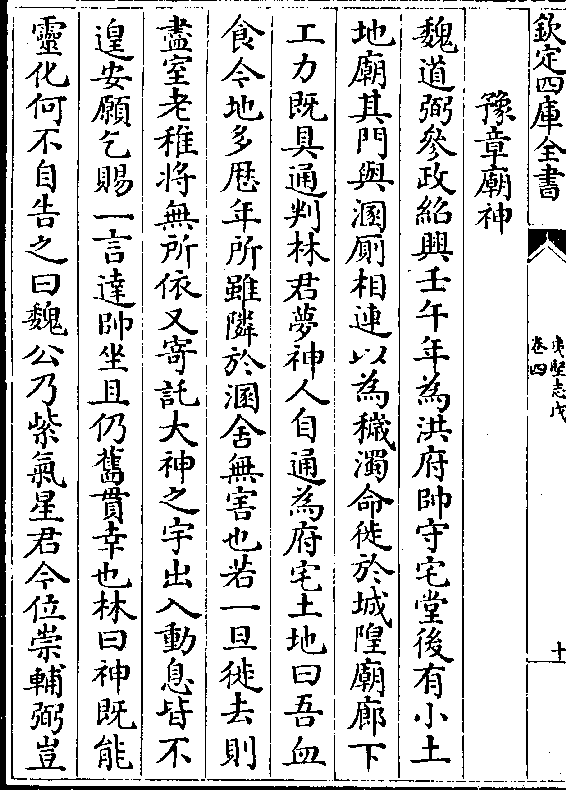 欽定四庫全書
夷堅志戊
卷四
十
豫章廟神
魏道弼參政紹興壬午年為洪府帥守宅堂後有小土
地廟其門與溷厠相連以為穢濁命徙於城隍廟廊下
工力既具通判林君夢神人自通為府宅土地曰吾血
食今地多歷年所雖隣於溷舍無害也若一旦徙去則
盡室老稚將無所依又寄託大神之宇出入動息皆不
遑安願乞賜一言達帥坐且仍舊貫幸也林曰神既能
靈化何不自告之曰魏公乃紫氣星君今位崇輔弼豈